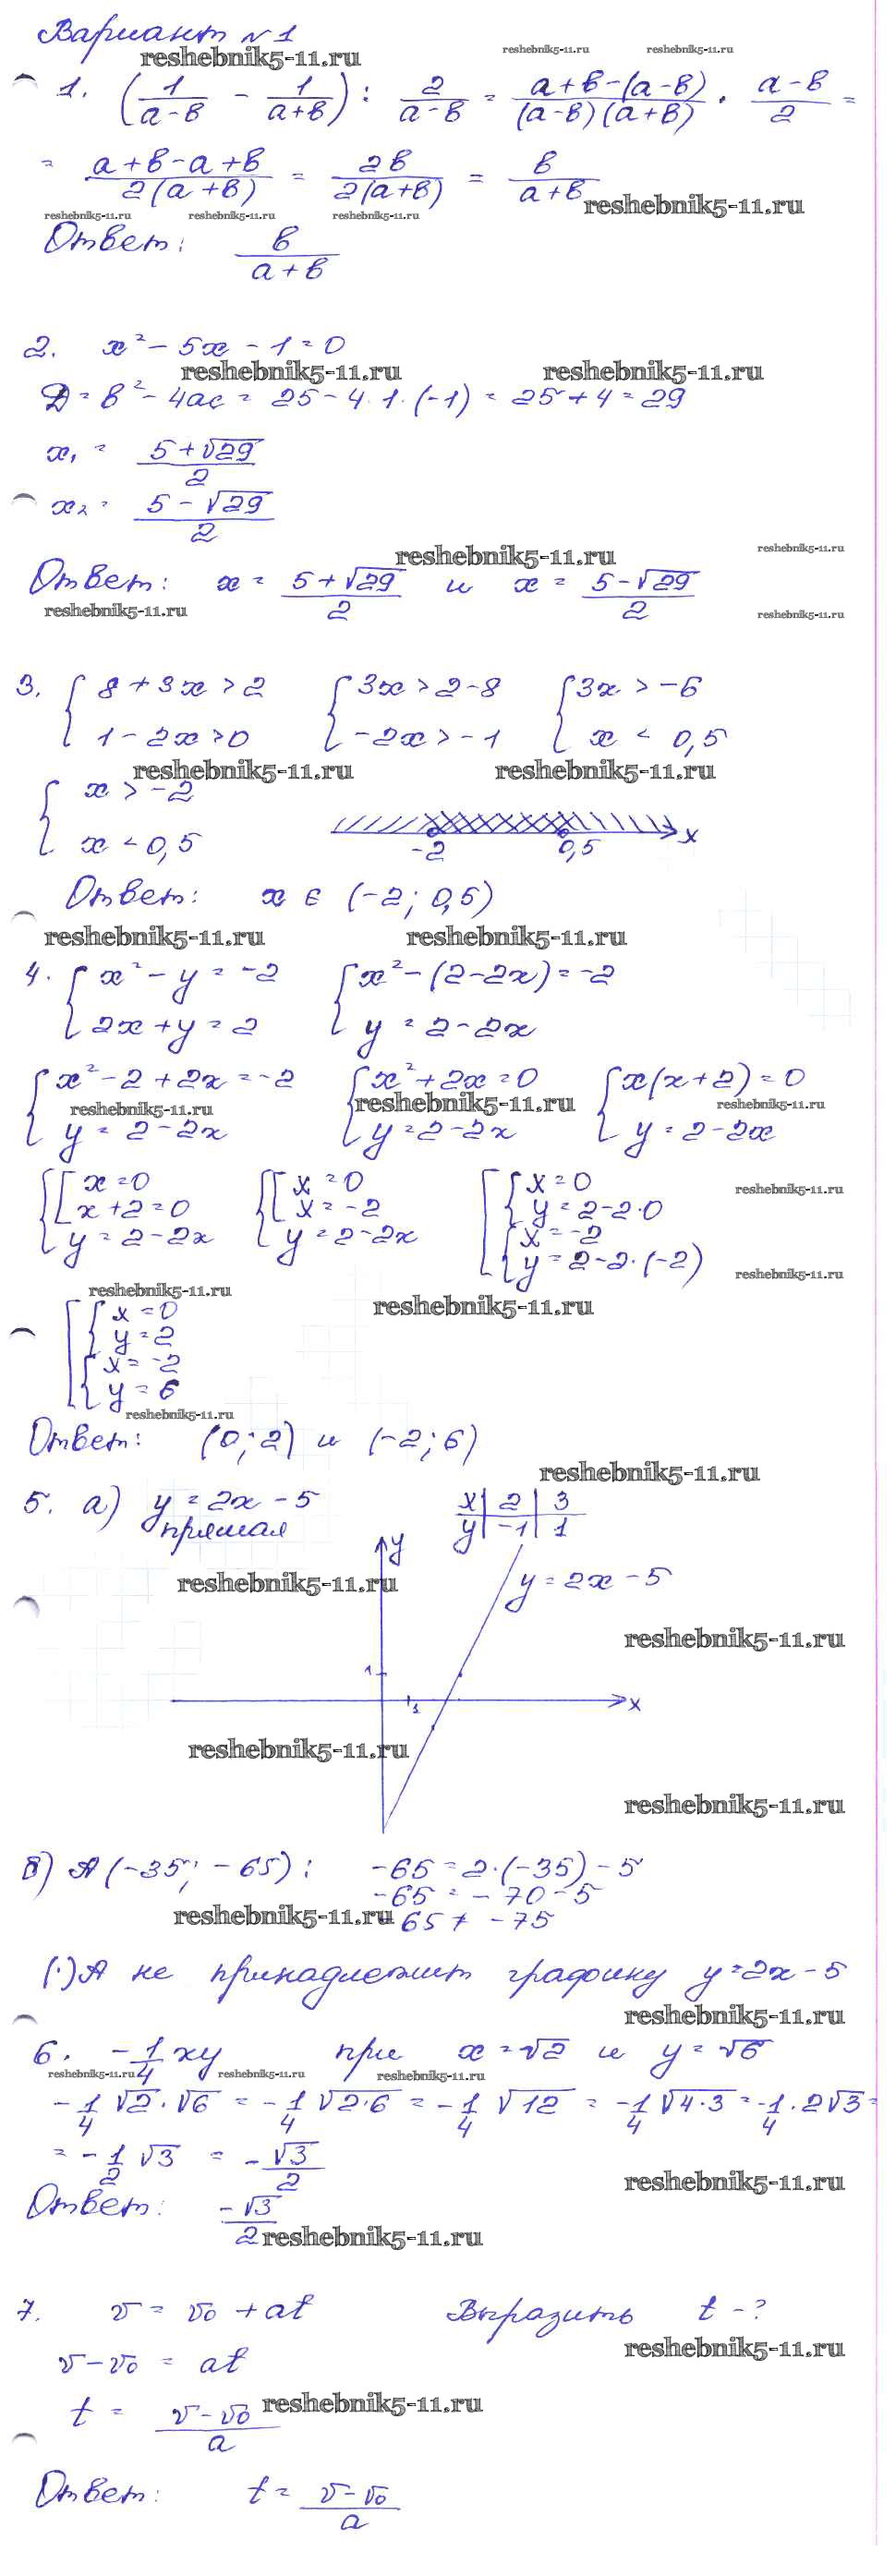 Вариант №1
reshebnik5-11.ru reshebnik5-11.ru reshebnik5-11.ru
1. (1/(a-b) - 1/(a+b)) : 2/(a-b) = (a+b-(a-b))/((a-b)(a+b)) · (a-b)/2 =
= (a+b-a+b)/(2(a+b)) = 2b/(2(a+b)) = b/(a+b)
reshebnik5-11.ru
reshebnik5-11.ru reshebnik5-11.ru reshebnik5-11.ru
Ответ: b/(a+b)
2. x² - 5x - 1 = 0
reshebnik5-11.ru reshebnik5-11.ru
D = b² - 4ac = 25 - 4·1·(-1) = 25 + 4 = 29
x₁ = (5+√29)/2
x₂ = (5-√29)/2
reshebnik5-11.ru reshebnik5-11.ru
Ответ: x = (5+√29)/2 и x = (5-√29)/2
reshebnik5-11.ru reshebnik5-11.ru
3. { 8 + 3x > 2 { 3x > 2-8 { 3x > -6
1 - 2x > 0 -2x > -1 x < 0,5
reshebnik5-11.ru reshebnik5-11.ru
{ x > -2
x < 0,5
-2 0,5 x
Ответ: x ∈ (-2; 0,5)
reshebnik5-11.ru reshebnik5-11.ru
4. { x² - y = -2 { x² - (2-2x) = -2
2x + y = 2 y = 2-2x
{ x² - 2 + 2x = -2 { x² + 2x = 0 { x(x+2) = 0
reshebnik5-11.ru reshebnik5-11.ru reshebnik5-11.ru
y = 2-2x y = 2-2x y = 2-2x
{ [ x=0 { [ x=0 [ { x=0
x+2=0 x=-2 y=2-2·0
reshebnik5-11.ru
y=2-2x y=2-2x { x=-2
y=2-2·(-2)
reshebnik5-11.ru
reshebnik5-11.ru reshebnik5-11.ru
[ { x=0
y=2
{ x=-2
y=6
reshebnik5-11.ru
Ответ: (0; 2) и (-2; 6)
reshebnik5-11.ru
5. а) y = 2x - 5 x | 2 | 3
прямая y | -1 | 1
y
reshebnik5-11.ru y = 2x - 5
reshebnik5-11.ru
1
1 x
reshebnik5-11.ru
reshebnik5-11.ru
б) A (-35; -65): -65 = 2·(-35) - 5
-65 = -70 - 5
reshebnik5-11.ru 65 ≠ -75
(·) A не принадлежит графику y = 2x - 5
reshebnik5-11.ru
6. -1/4 xy при x = √2 и y = √6
reshebnik5-11.ru reshebnik5-11.ru reshebnik5-11.ru
-1/4 √2·√6 = -1/4 √2·6 = -1/4 √12 = -1/4 √4·3 = -1/4 · 2√3 =
= -1/2 √3 = -√3/2
reshebnik5-11.ru
Ответ: -√3/2
reshebnik5-11.ru
7. v = v₀ + at Выразить t - ?
reshebnik5-11.ru
v - v₀ = at
t = (v-v₀)/a
reshebnik5-11.ru
Ответ: t = (v-v₀)/a